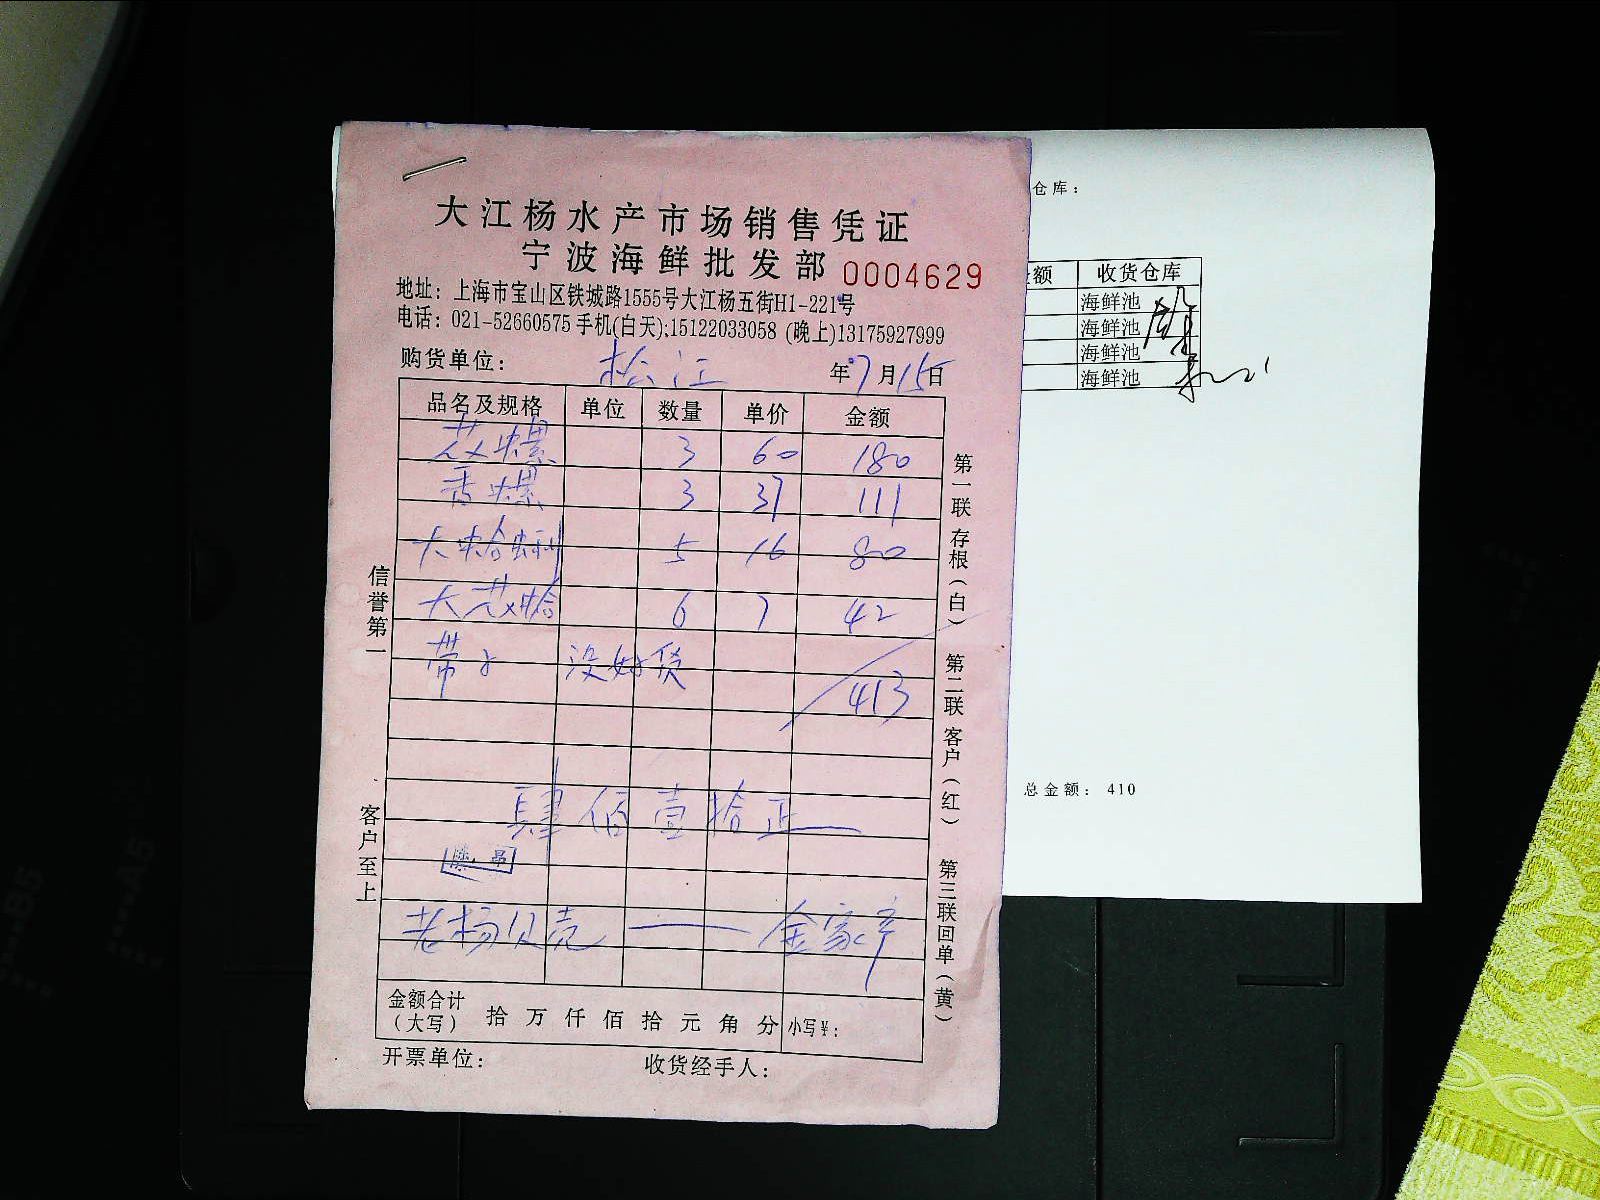 大江杨水产市场销售凭证
宁波海鲜批发部 0004629
地址：上海市宝山区铁城路1555号大江杨五街H1-221号
电话：021-52660575 手机(白天);15122033058 (晚上)13175927999
购货单位： 松江 年 7 月 15 日
品名及规格 单位 数量 单价 金额
花螺 3 60 180
香螺 3 37 111
大蛤蜊 5 16 80
大花蛤 6 7 42
带子 没好货
413
肆佰壹拾正
老杨贝壳 —— 金家
金额合计（大写） 拾 万 仟 佰 拾 元 角 分 小写¥：
开票单位： 收货经手人：
信誉第一
客户至上
第一联存根（白）
第二联客户（红）
第三联回单（黄）
仓库：
额 收货仓库
海鲜池
海鲜池
海鲜池
海鲜池
总金额： 410